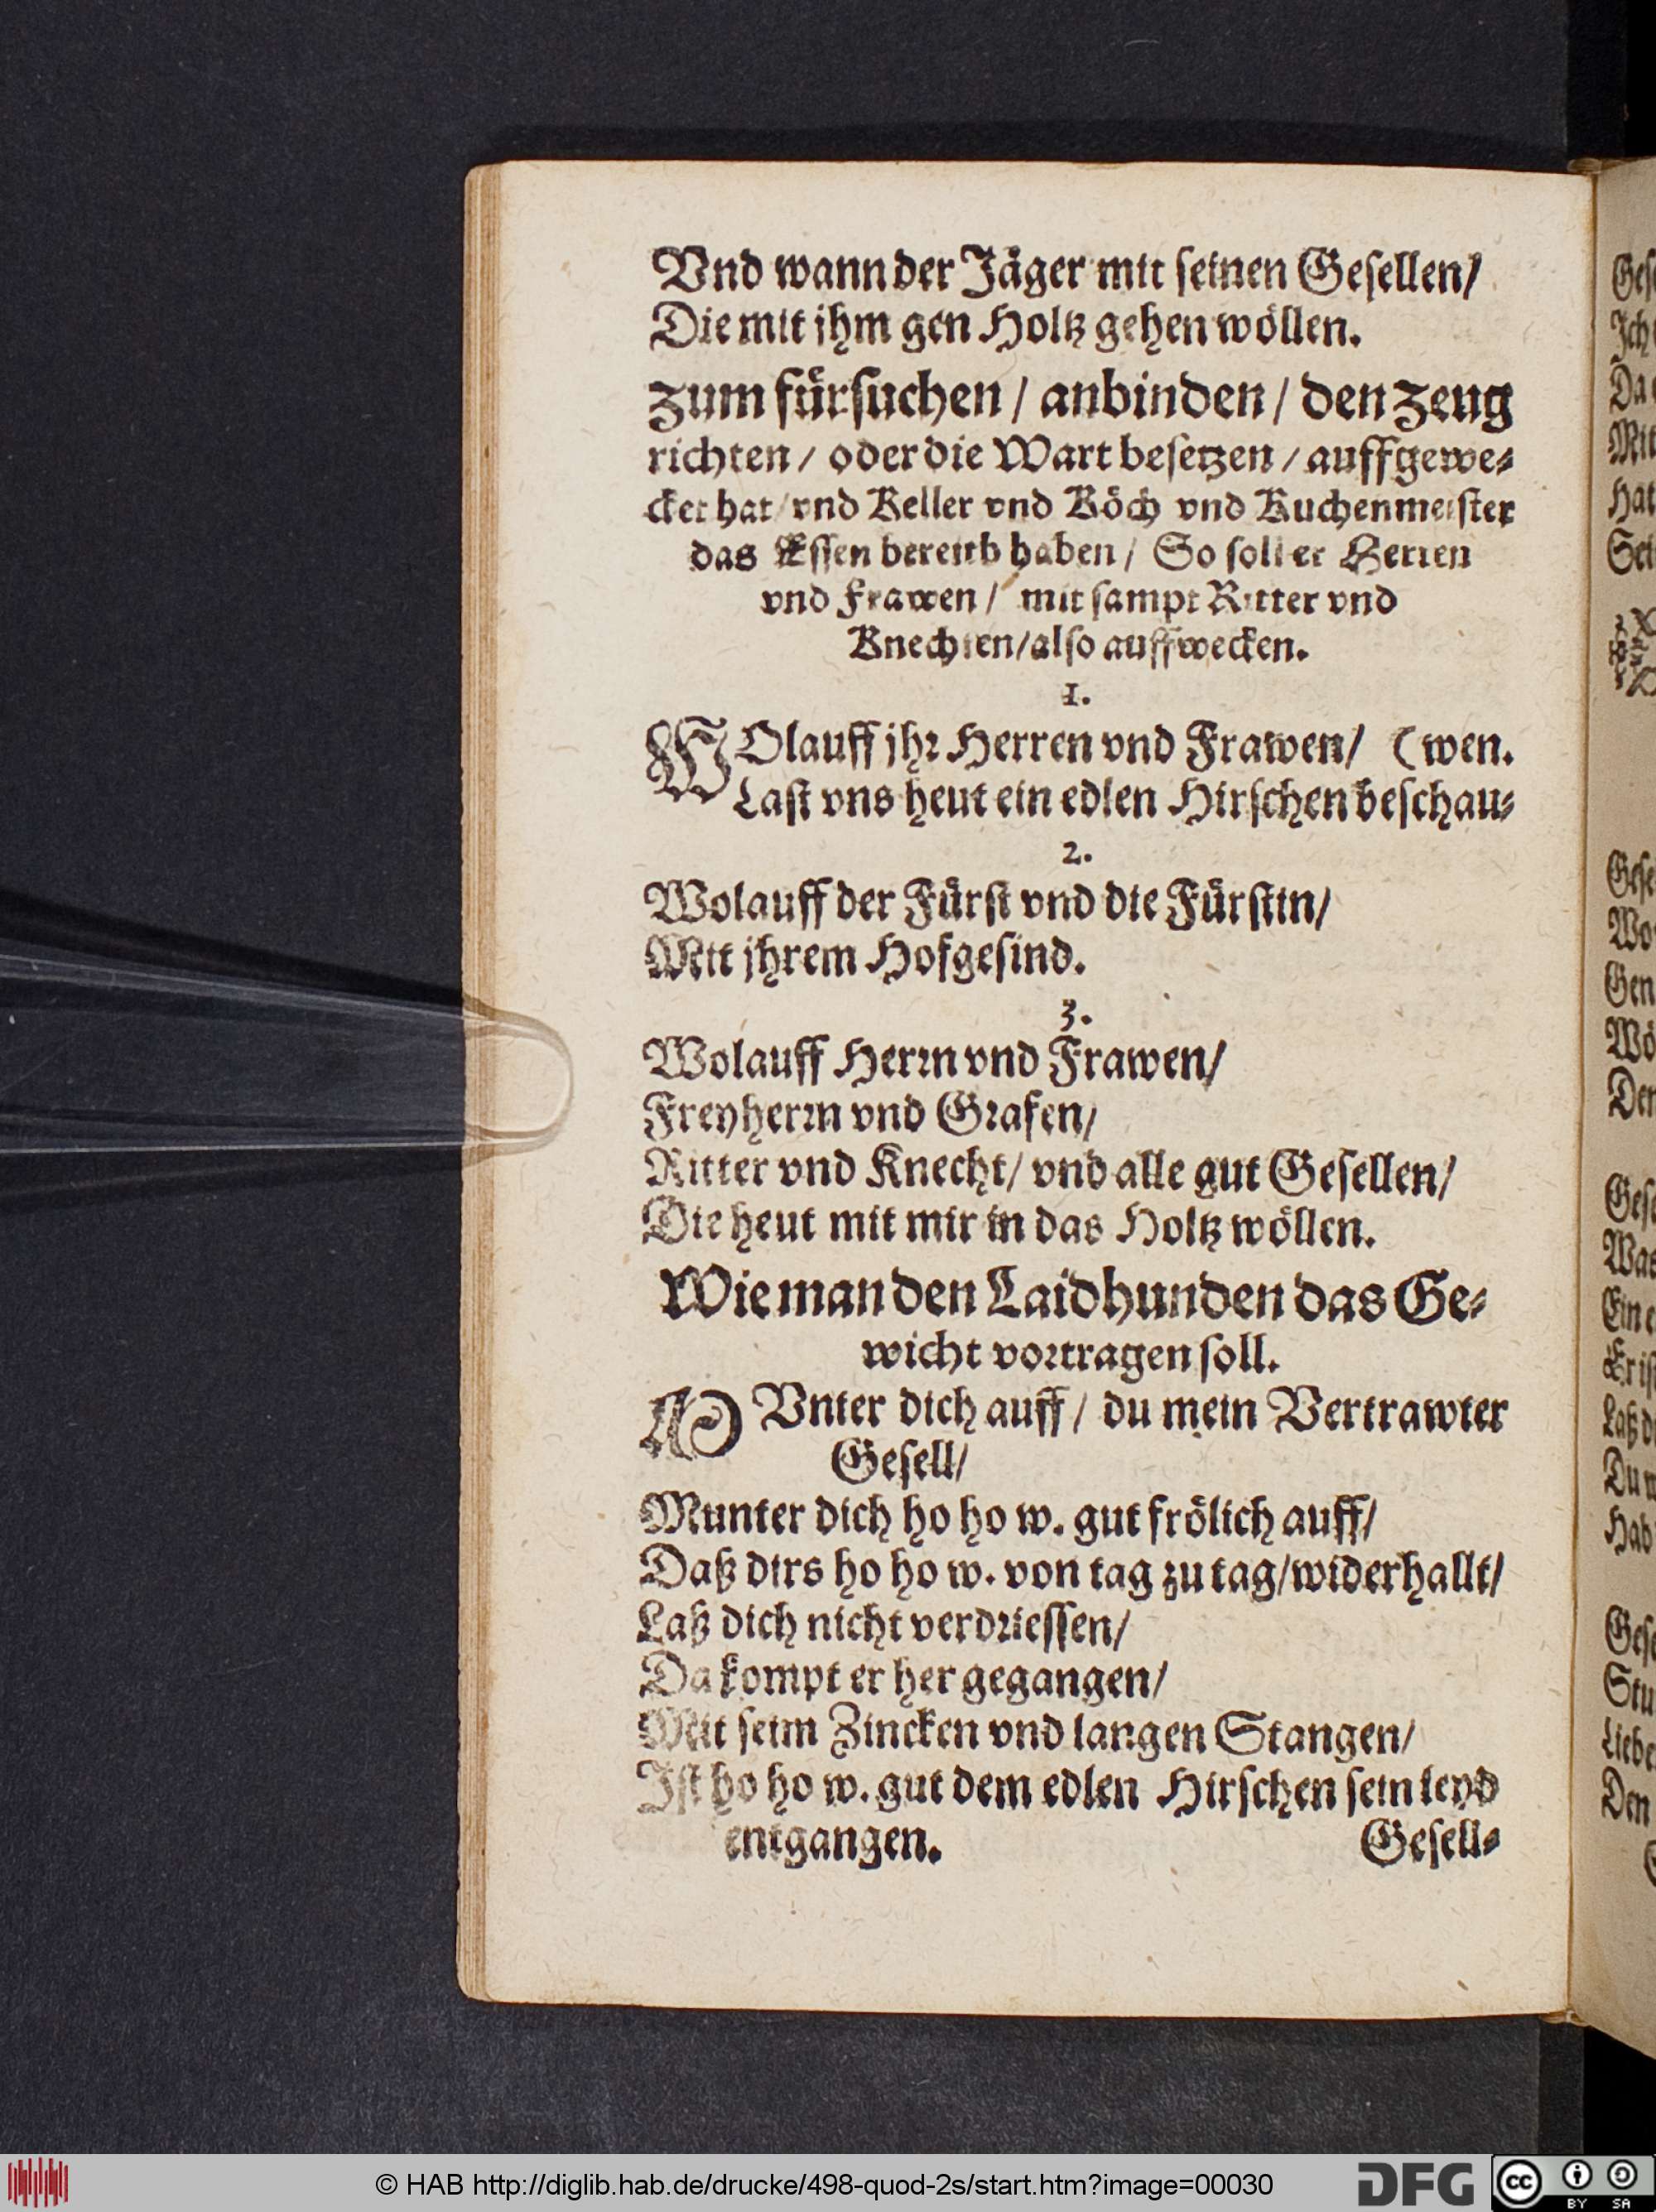 Vnd wann der Jäger mit seinen Gesellen/
Die mit jhm gen Holtz gehen wöllen.
Zum fürsuchen / anbinden / den Zeug
richten / oder die Wart besetzen / auffgewe-
cket hat / vnd Keller vnd Köch vnd Kuchenmeister
das Essen bereitb haben / So soll er Herren
vnd Frawen / mit sampt Ritter vnd
Knechten/also auffwecken.
1.
WOlauff jhr Herren vnd Frawen/ (wen.
Last vns heut ein edlen Hirschen beschau-
2.
Wolauff der Fürst vnd die Fürstin/
Mit jhrem Hofgesind.
3.
Wolauff Herrn vnd Frawen/
Freyherrn vnd Grafen/
Ritter vnd Knecht/ vnd alle gut Gesellen/
Die heut mit mir in das Holtz wöllen.
Wie man den Laidhunden das Ge-
wicht vortragen soll.
MVnter dich auff / du mein Vertrawter
Gesell/
Munter dich ho ho w. gut frölich auff/
Daß dirs ho ho w. von tag zu tag/widerhallt/
Laß dich nicht verdriessen/
Da kompt er her gegangen/
Mit seim Zincken vnd langen Stangen/
Ist ho ho w. gut dem edlen Hirschen sein leyd
entgangen. Gesell-
© HAB http://diglib.hab.de/drucke/498-quod-2s/start.htm?image=00030
DFG
cc BY SA